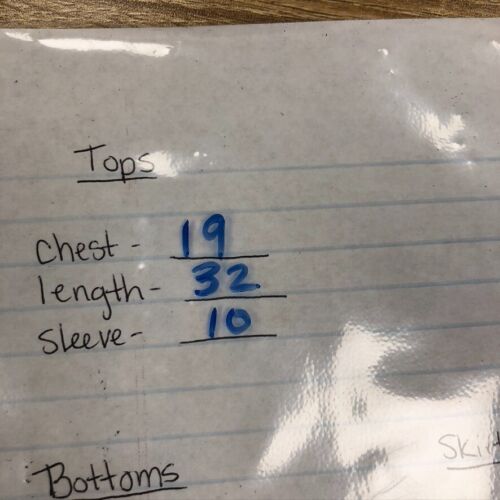 Tops
chest - 19
length - 32
sleeve - 10
Bottoms